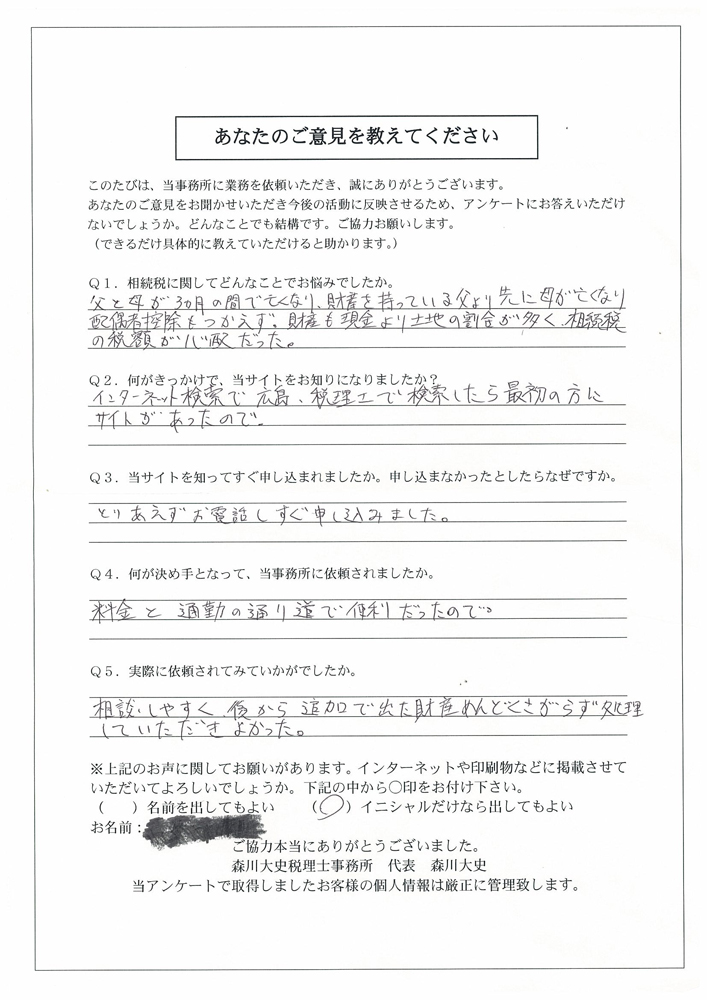 あなたのご意見を教えてください
このたびは、当事務所に業務を依頼いただき、誠にありがとうございます。
あなたのご意見をお聞かせいただき今後の活動に反映させるため、アンケートにお答えいただけ
ないでしょうか。どんなことでも結構です。ご協力お願いします。
（できるだけ具体的に教えていただけると助かります。）
Ｑ１．相続税に関してどんなことでお悩みでしたか。
父と母が3ヵ月の間で亡くなり、財産を持っている父より先に母が亡くなり
配偶者控除もつかえず、財産も現金より土地の割合が多く、相続税
の税額が心配だった。
Ｑ２．何がきっかけで、当サイトをお知りになりましたか？
インターネット検索で広島、税理士で検索したら最初の方に
サイトがあったので。
Ｑ３．当サイトを知ってすぐ申し込まれましたか。申し込まなかったとしたらなぜですか。
とりあえずお電話しすぐ申し込みました。
Ｑ４．何が決め手となって、当事務所に依頼されましたか。
料金と通勤の通り道で便利だったので。
Ｑ５．実際に依頼されてみていかがでしたか。
相談しやすく、後から追加で出た財産めんどくさがらず処理
していただきよかった。
※上記のお声に関してお願いがあります。インターネットや印刷物などに掲載させて
いただいてよろしいでしょうか。下記の中から○印をお付け下さい。
（　）名前を出してもよい　（○）イニシャルだけなら出してもよい
お名前：
ご協力本当にありがとうございました。
森川大史税理士事務所　代表　森川大史
当アンケートで取得しましたお客様の個人情報は厳正に管理致します。